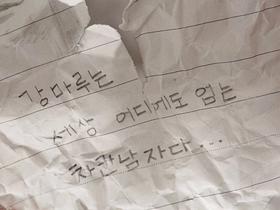 강마루는
세상 어디게도 없는
차칸남자다...